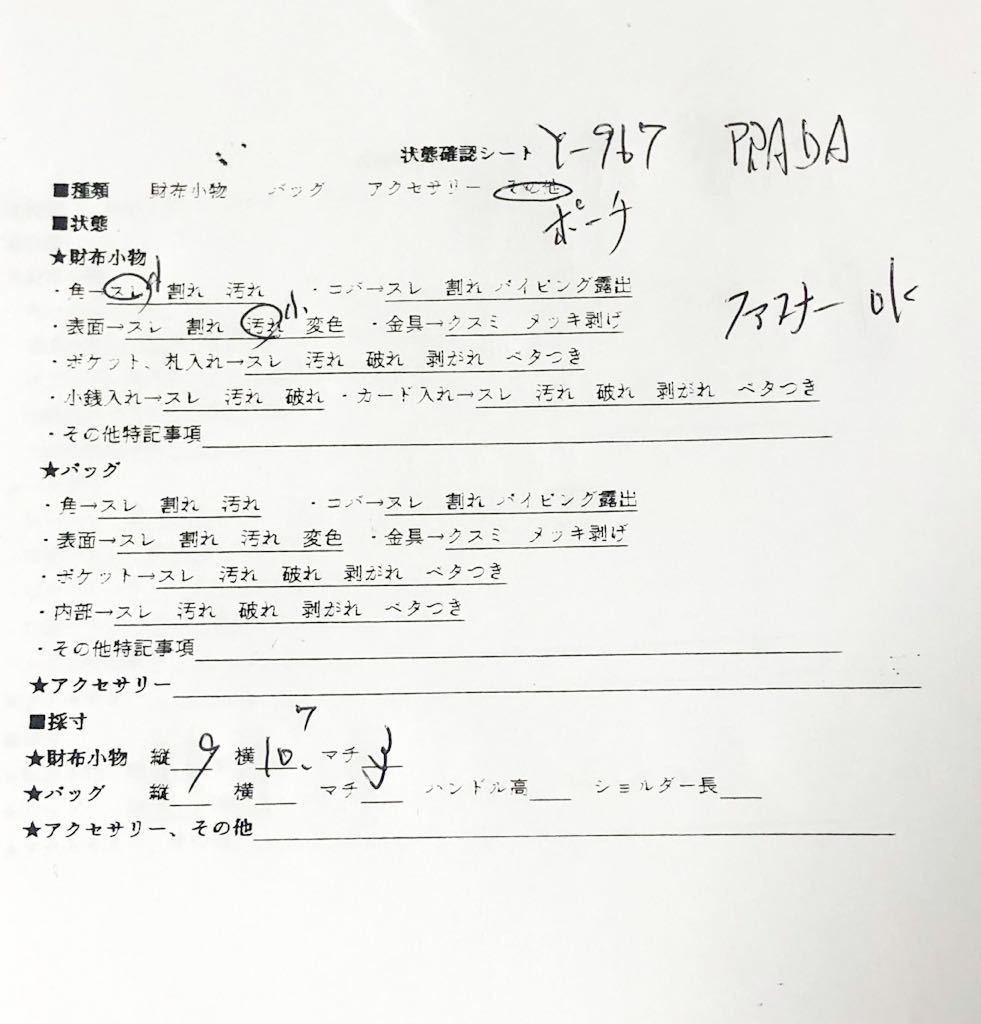 状態確認シート Y-967 PRADA
■種類 財布小物 バッグ アクセサリー その他
ポーチ
■状態
★財布小物
・角→スレ小 割れ 汚れ ・コバ→スレ 割れ パイピング露出
ファスナー ok
・表面→スレ 割れ 汚れ小 変色 ・金具→クスミ メッキ剥げ
・ポケット、札入れ→スレ 汚れ 破れ 剥がれ ベタつき
・小銭入れ→スレ 汚れ 破れ ・カード入れ→スレ 汚れ 破れ 剥がれ ベタつき
・その他特記事項
★バッグ
・角→スレ 割れ 汚れ ・コバ→スレ 割れ パイピング露出
・表面→スレ 割れ 汚れ 変色 ・金具→クスミ メッキ剥げ
・ポケット→スレ 汚れ 破れ 剥がれ ベタつき
・内部→スレ 汚れ 破れ 剥がれ ベタつき
・その他特記事項
★アクセサリー
■採寸
★財布小物 縦 9 横 10、7 マチ 3
★バッグ 縦 横 マチ ハンドル高 ショルダー長
★アクセサリー、その他